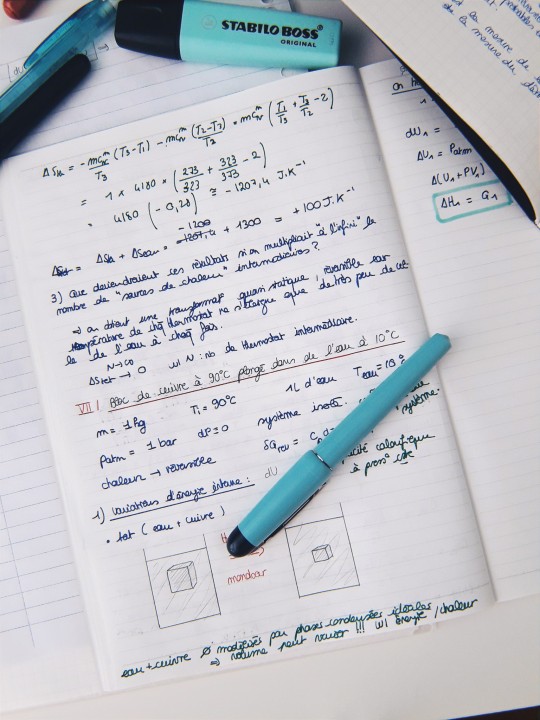 STABILO BOSS
ORIGINAL
ΔSth = -mCpm/T3 (T3-T1) - mCpm (T2-T3)/T2 = mCpm (T1/T3 + T3/T2 - 2)
= 1 x 4180 x (273/323 + 323/373 - 2)
= 4180 (-0,28) ≅ -1207,4 J.K⁻¹
-1200
ΔStot = ΔSth + ΔSeau = -1207,4 + 1300 = +100 J.K⁻¹
3) Que deviendraient ces résultats si on multipliait "à l'infini" le
nombre de "sources de chaleur" intermédiaires ?
⇒ on obtient une transformat° quasi statique, réversible car
température de chq thermostat ne s'écarque que de très peu de celle
de l'eau à chaq fois.
N→∞
ΔStot → 0 w/ N : nb de thermostat intermédiaire.
VII/ Bloc de cuivre à 90°C plongé dans de l'eau à 10°C
m = 1 kg T1 = 90°C 1L d'eau Teau = 10°C
Patm = 1 bar dP = 0 système isolé.
système.
chaleur → réversible δQrev =
calorifique
à press° cste
dU
1) Variations d'énergie interne :
• tot (eau + cuivre)
monobar
eau + cuivre modélisés par phases condensées idéales
⇒ volume peut varier !!! w/ énergie / chaleur
dU1 =
ΔU1 = Patm
Δ(U1 + PV1)
ΔH1 = Q1
la mesure de
de la mesure du